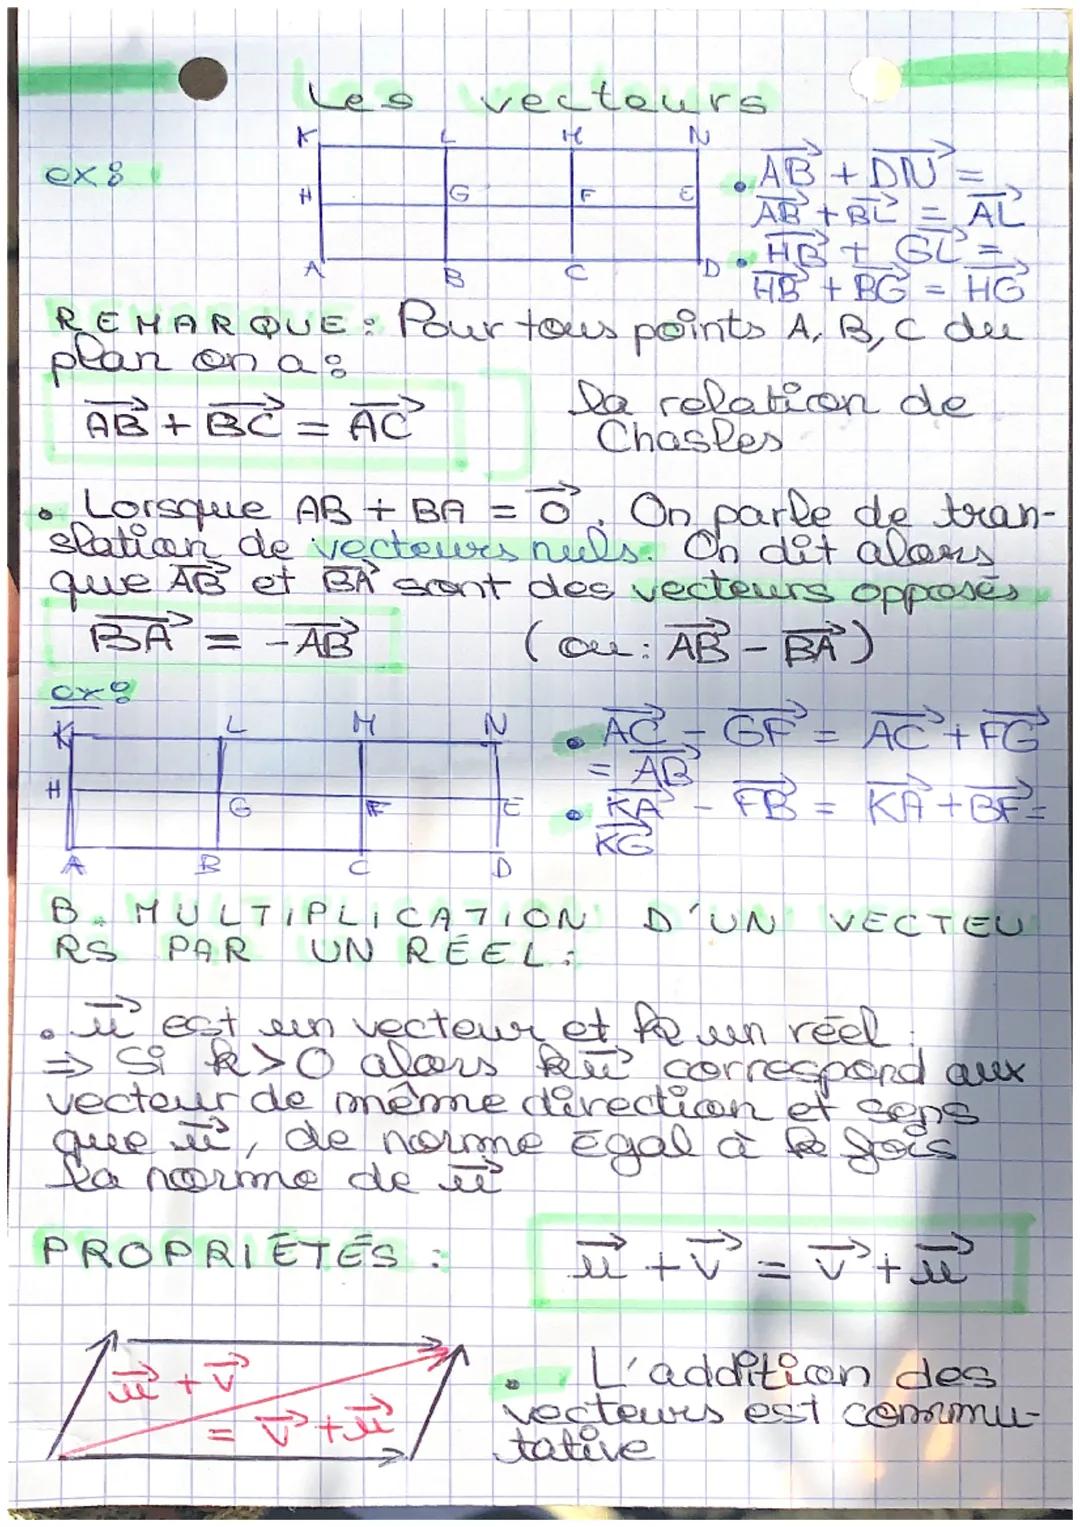 Les vecteurs
ex:
K L M N
H G F E
A B C D
• \overrightarrow{AB} + \overrightarrow{DN} =
\overrightarrow{AB} + \overrightarrow{BL} = \overrightarrow{AL}
• \overrightarrow{HB} + \overrightarrow{GL} =
\overrightarrow{HB} + \overrightarrow{BG} = \overrightarrow{HG}
REMARQUE: Pour tous points A, B, C du
plan on a:
\overrightarrow{AB} + \overrightarrow{BC} = \overrightarrow{AC}
la relation de
Chasles
• Lorsque AB + BA = \overrightarrow{0}. On parle de tran-
slation de vecteurs nuls. On dit alors
que \overrightarrow{AB} et \overrightarrow{BA} sont des vecteurs opposés
\overrightarrow{BA} = -\overrightarrow{AB} (ou: \overrightarrow{AB} - \overrightarrow{BA})
ex:
K L M N
H G F E
A B C D
• \overrightarrow{AC} - \overrightarrow{GF} = \overrightarrow{AC} + \overrightarrow{FG}
= \overrightarrow{AB}
• \overrightarrow{KA} - \overrightarrow{FB} = \overrightarrow{KA} + \overrightarrow{BF} =
\overrightarrow{KG}
B. MULTIPLICATION D'UN VECTEU
RS PAR UN RÉEL:
• \overrightarrow{u} est un vecteur et k un réel:
⇒ Si k > 0 alors k\overrightarrow{u} correspond aux
vecteur de même direction et sens
que \overrightarrow{u}, de norme égal à k fois
la norme de \overrightarrow{u}
PROPRIÉTÉS:
\overrightarrow{u} + \overrightarrow{v} = \overrightarrow{v} + \overrightarrow{u}
\overrightarrow{u} + \overrightarrow{v}
= \overrightarrow{v} + \overrightarrow{u}
• L'addition des
vecteurs est commu-
tative